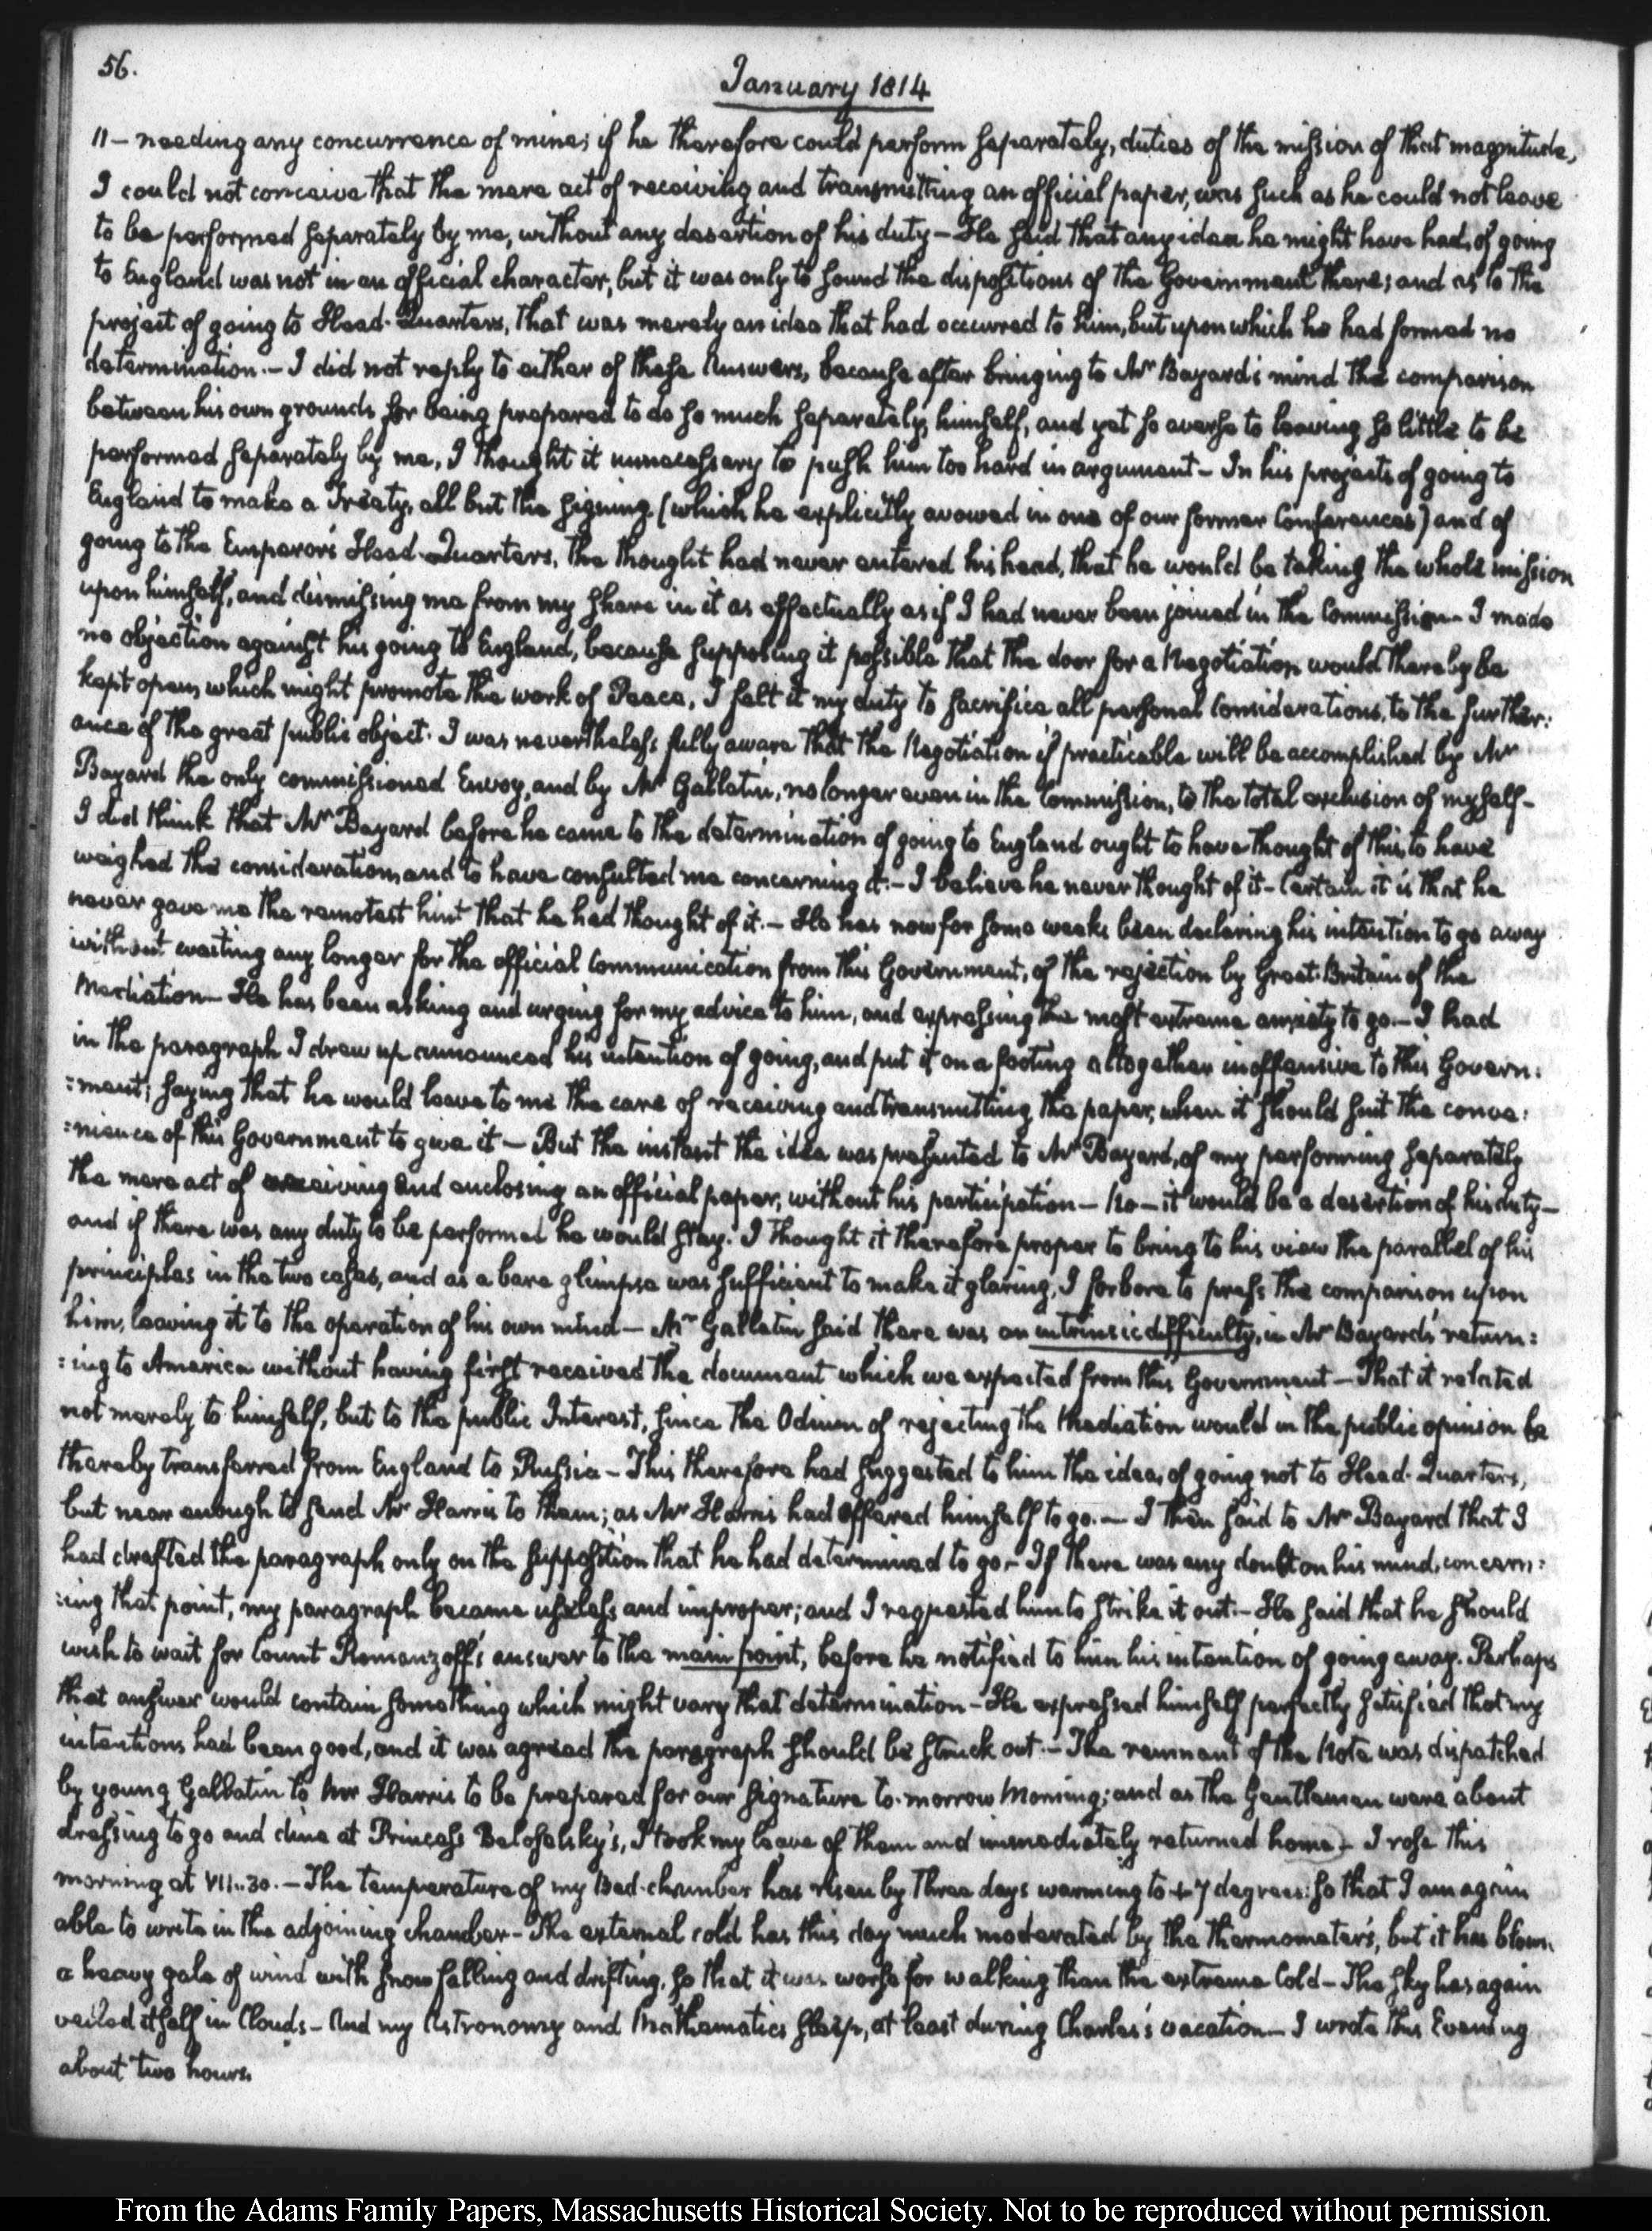 56.
January 1814
11 — needing any concurrence of mine; if he therefore could perform separately, duties of the mission of that magnitude,
I could not conceive that the mere act of receiving and transmitting an official paper, was such as he could not leave
to be performed separately by me, without any desertion of his duty — He said that any idea he might have had, of going
to England was not in an official character, but it was only to sound the dispositions of the Government there; and as to the
project of going to Head-Quarters, that was merely an idea that had occurred to him, but upon which he had formed no
determination. — I did not reply to either of these Answers, because after bringing to Mr Bayard's mind the comparison
between his own grounds for being prepared to do so much separately, himself, and yet so averse to leaving so little to be
performed separately by me, I thought it unnecessary to push him too hard in argument — In his projects of going to
England to make a Treaty, all but the signing (which he explicitly avowed in one of our former Conferences) and of
going to the Emperor's Head-Quarters, the thought had never entered his head, that he would be taking the whole mission
upon himself, and dismissing me from my share in it as effectually as if I had never been joined in the Commission — I made
no objection against his going to England, because supposing it possible that the door for a Negotiation would thereby be
kept open, which might promote the work of Peace, I felt it my duty to sacrifice all personal Considerations, to the further:
ance of the great public object. I was nevertheless fully aware that the Negotiation if practicable will be accomplished by Mr
Bayard the only commissioned Envoy, and by Mr Gallatin, no longer even in the Commission, to the total exclusion of myself —
I did think that Mr Bayard before he came to the determination of going to England ought to have thought of this, to have
weighed the consideration, and to have consulted me concerning it. — I believe he never thought of it — Certain it is that he
never gave me the remotest hint that he had thought of it. — He has now for some weeks been declaring his intention to go away
without waiting any longer for the official Communication from this Government, of the rejection by Great-Britain of the
Mediation — He has been asking and urging for my advice to him, and expressing the most extreme anxiety to go. — I had
in the paragraph I drew up announced his intention of going, and put it on a footing altogether inoffensive to this Govern:
:ment; saying that he would leave to me the care of receiving and transmitting the paper, when it should suit the conve:
:nience of this Government to give it — But the instant the idea was presented to Mr Bayard, of my performing separately
the mere act of receiving and enclosing an official paper, without his participation — No — it would be a desertion of his duty —
and if there was any duty to be performed he would stay. I thought it therefore proper to bring to his view the parallel of his
principles in the two cases, and as a bare glimpse was sufficient to make it glaring, I forbore to press the comparison upon
him, leaving it to the operation of his own mind — Mr Gallatin said there was an intrinsic difficulty, in Mr Bayard's return:
:ing to America without having first received the document which we expected from this Government — That it related
not merely to himself, but to the public Interest, since the Odium of rejecting the Mediation would in the public opinion be
thereby transferred from England to Russia — This therefore had suggested to him the idea, of going not to Head-Quarters,
but near enough to send Mr Harris to them; as Mr Harris had offered himself to go. — I then said to Mr Bayard that I
had drafted the paragraph only on the supposition that he had determined to go — If there was any doubt on his mind, concern:
:ing that point, my paragraph became useless and improper; and I requested him to strike it out. — He said that he should
wish to wait for Count Romanzoff's answer to the main point, before he notified to him his intention of going away. Perhaps
that answer would contain something which might vary that determination — He expressed himself perfectly satisfied that my
intentions had been good, and it was agreed the paragraph should be struck out. — The remnant of the Note was dispatched
by young Gallatin to Mr Harris to be prepared for our signature to-morrow Morning; and as the Gentlemen were about
dressing to go and dine at Princess Beloselsky's, I took my leave of them and immediately returned home — I rose this
morning at VII..30. — The temperature of my Bed-chamber has risen by three days warming to +7 degrees: so that I am again
able to write in the adjoining chamber — The external cold has this day much moderated by the thermometer's, but it has blown
a heavy gale of wind with snow falling and drifting, so that it was worse for walking than the extreme Cold — The sky has again
veiled itself in Clouds — And my Astronomy and Mathematics sleep, at least during Charles's vacation — I wrote this Evening
about two hours.
From the Adams Family Papers, Massachusetts Historical Society. Not to be reproduced without permission.